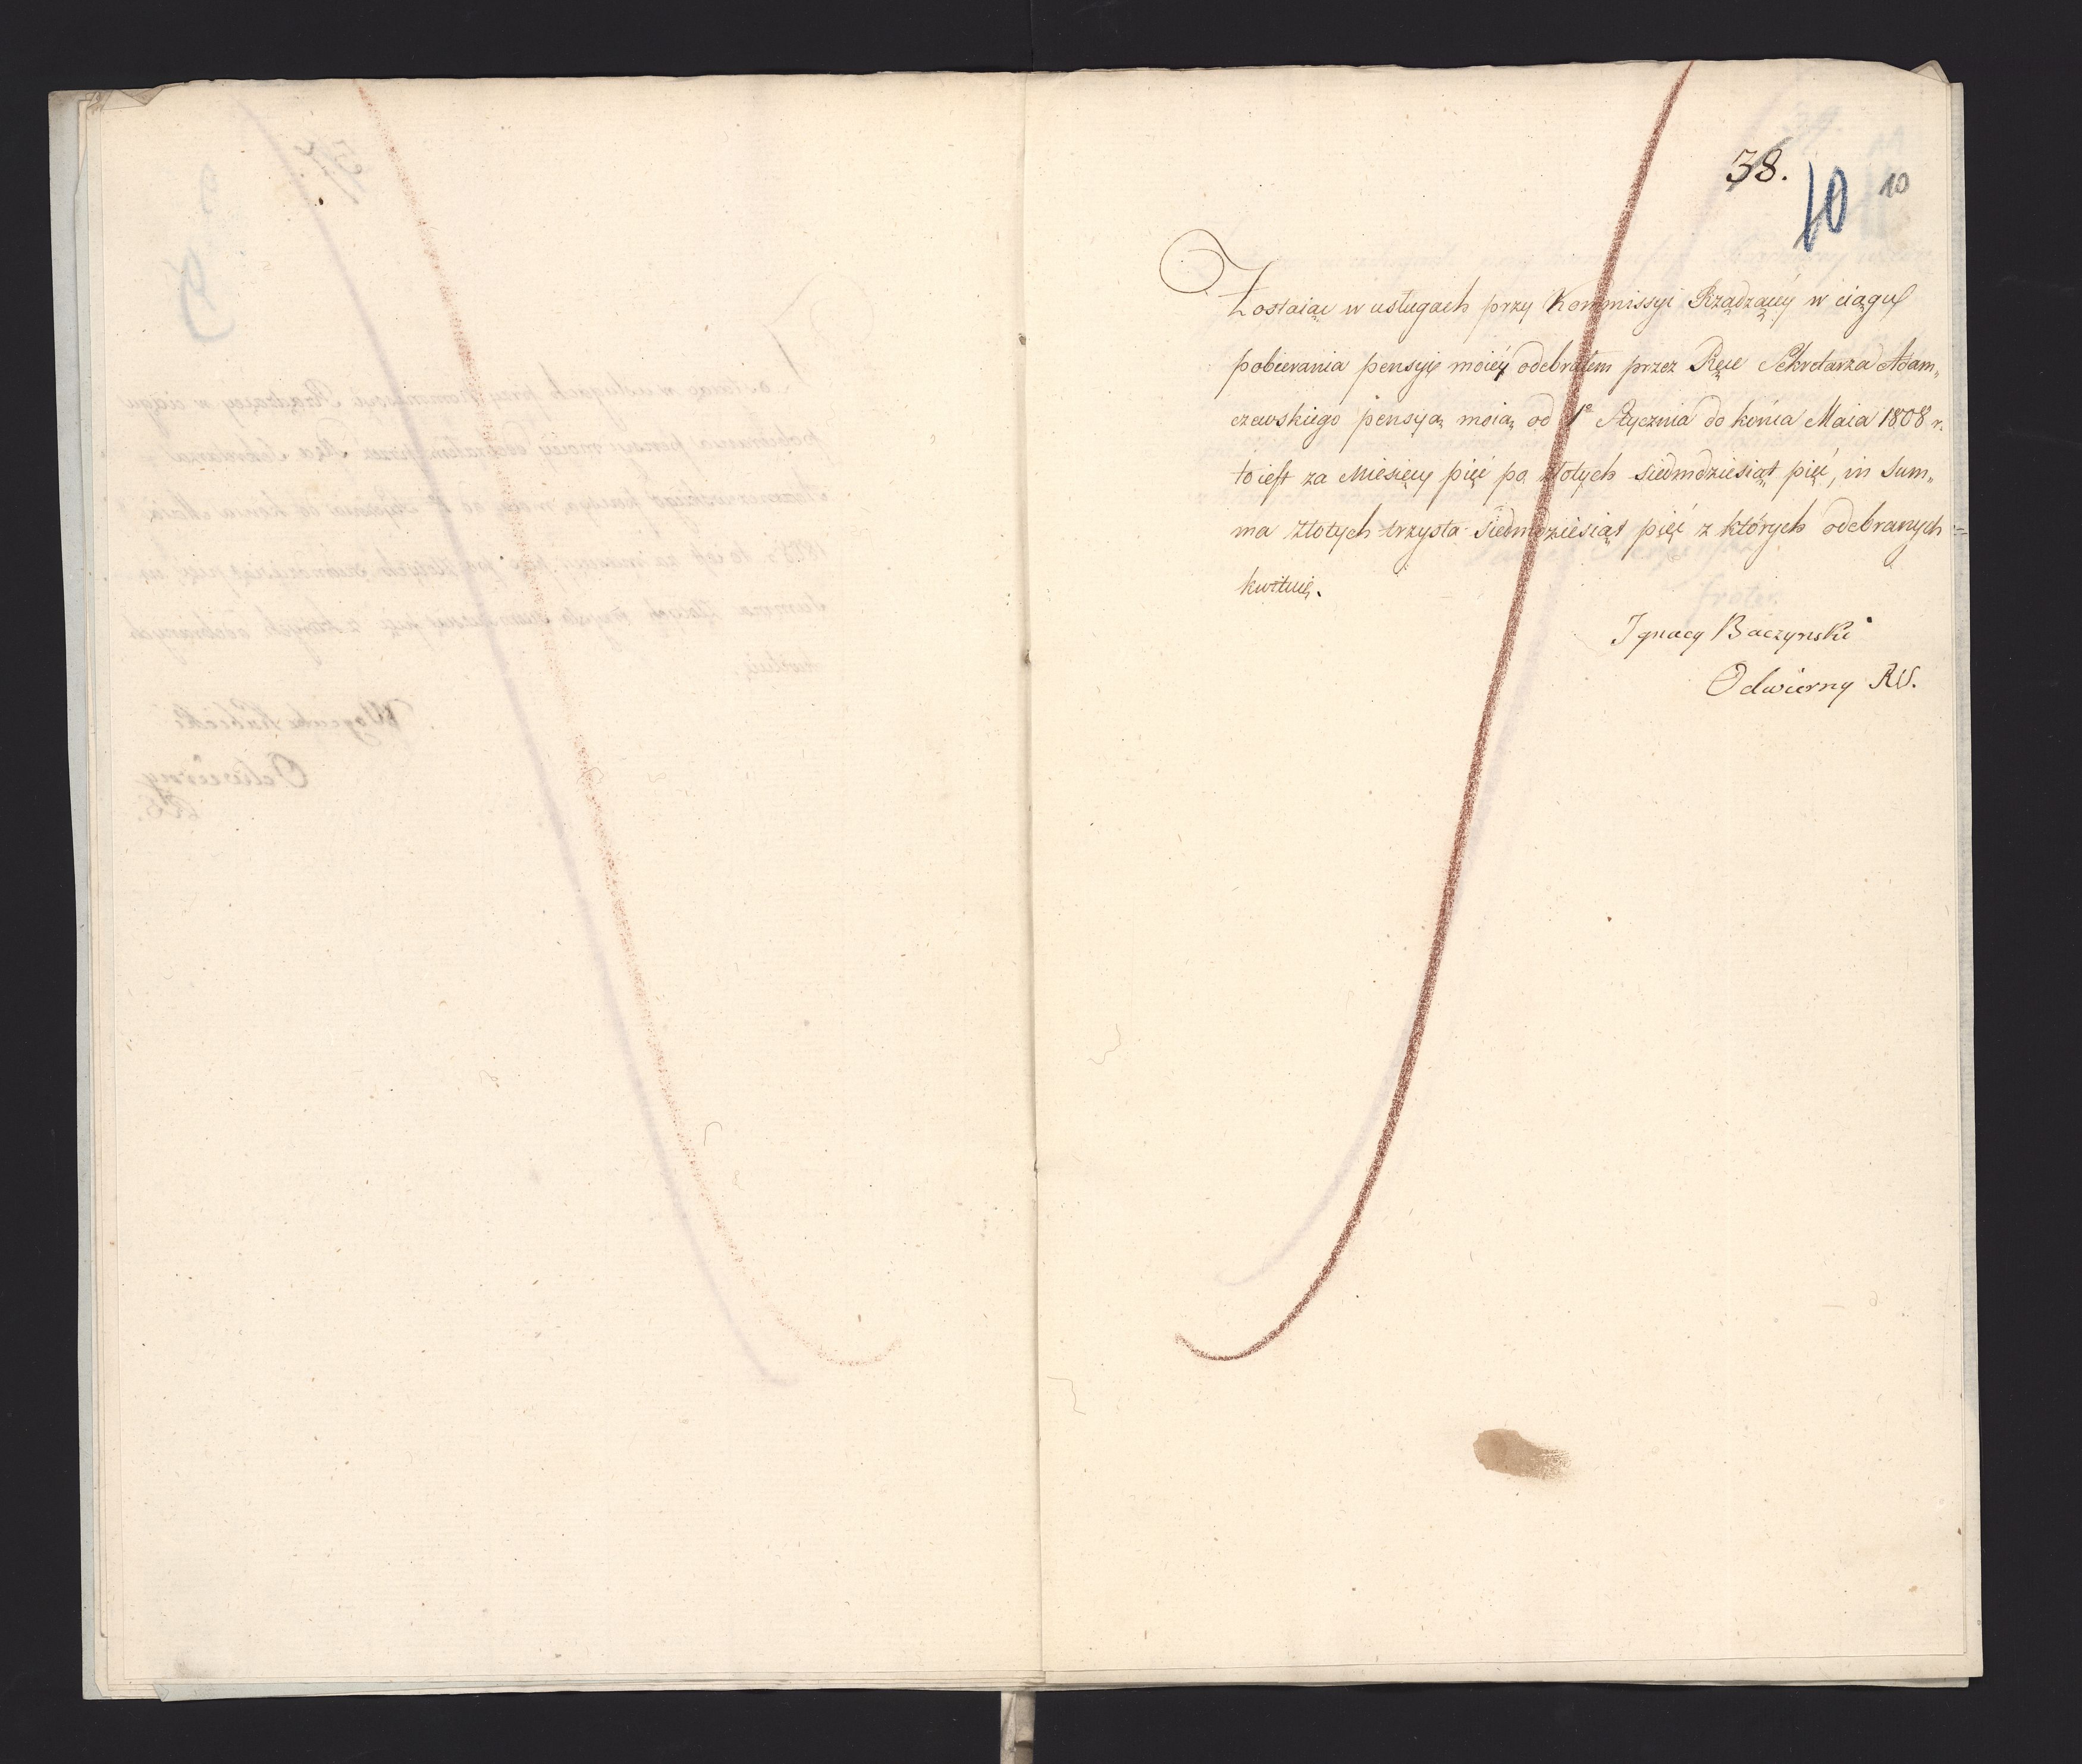 38.
10 10
Zostaiąc w usługach przy Kommissyi Rządzącéy w ciągu
pobierania pensyię moiéy odebrałem przez Ręce Sekretarza Adam„
czewskiego pensyą moią od 1º Stycznia do końca Maia 1808 r.
to iest za Miesięcy pięć po złotych siedmdziesiąt pięć, in Sum„
ma złotych trzysta siedmdziesiąt pięć z których odebranych
kwituię.
Ignacy Baczynski
Odwierny RS.